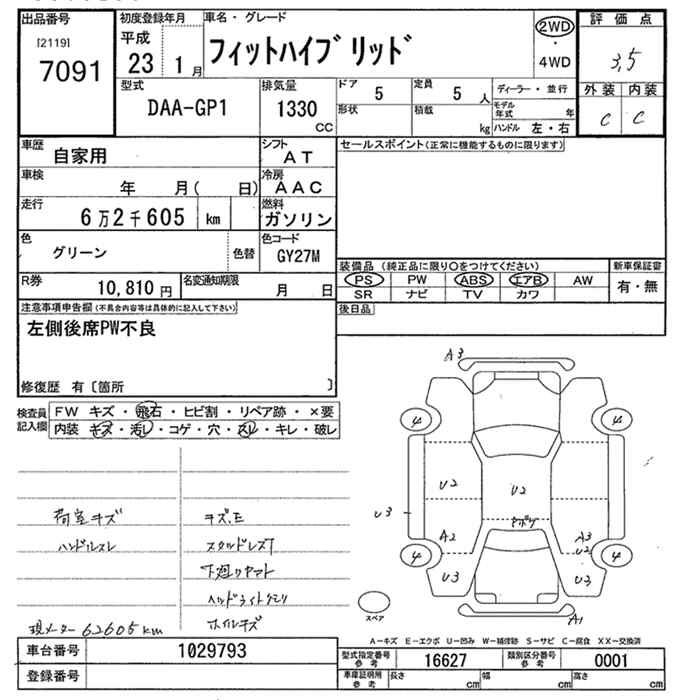 出品番号 初度登録年月 車名・グレード 評価点
[2119] 平成 フィットハイブリッド 2WD 3,5
7091 23 1月 ・4WD
型式 排気量 ドア 定員 ディーラー・並行 外装 内装
DAA-GP1 1330 CC 5 5人 モデル年式 年 C C
形状 積載 kg ハンドル 左・右
車歴 自家用 シフト AT セールスポイント(正常に機能するものに限ります)
車検 年 月( 日) 冷房 AAC
走行 6万2千605 km 燃料 ガソリン
色 グリーン 色替 色コード GY27M
装備品(純正品に限り○をつけてください) 新車保証書
R券 10,810円 名変通知期限 月 日 PS PW ABS エアB AW 有・無
SR ナビ TV カワ
注意事項申告欄(不具合内容等は具体的に記入して下さい) 後日品
左側後席PW不良
修復歴 有〔箇所 〕
検査員記入欄 FW キズ・飛石・ヒビ割・リペア跡・×要
内装 キズ・汚レ・コゲ・穴・スレ・キレ・破レ
A3
4 4
U2 U2
U3 ヤボツ
A2 A3
U2
4 4
U3 U3
A1
スペア
荷室キズ キズ.E
ハンドルスレ スタッドレス7
下廻りヤマト
ヘッドライトクモリ
現メーター 62605km ホイルキズ
A-キズ E-エクボ U-凹み W-補修跡 S-サビ C-腐食 XX-交換済
車台番号 1029793 型式指定番号 参考 16627 類別区分番号 参考 0001
登録番号 車庫証明用 参考 長さ cm 幅 cm 高さ cm